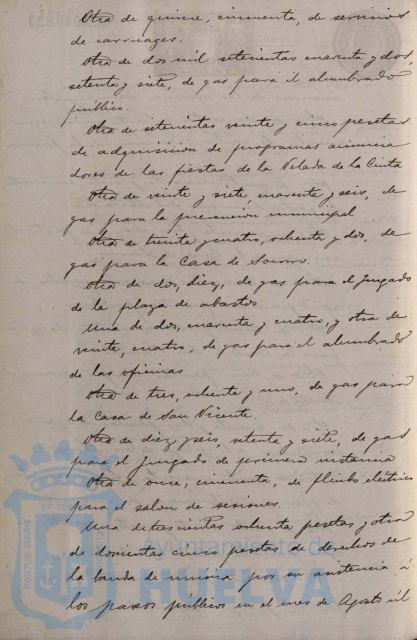 Otra de quince, cincuenta, de servicios
de carruages.
Otra de dos mil setecientas cuarenta y dos,
setenta y siete, de gas para el alumbrado
público.
Otra de setecientas veinte y cinco pesetas
de adquisición de programas anuncia
dores de las fiestas de la Velada de la Cinta
Otra de veinte y siete, cuarenta y seis, de
gas para la prevención municipal
Otra de treinta y cuatro, ochenta y dos, de
gas para la Casa de Socorro.
Otra de dos, diez, de gas para el Juzgado
de la plaza de abastos
Una de dos, cuarenta y cuatro, y otra de
veinte, cuatro, de gas para el alumbrado
de las oficinas
Otra de tres, ochenta y uno, de gas para
la Casa de San Vicente.
Otra de diez y seis, setenta y siete, de gas
para el Juzgado de primera instancia
Otra de once, cincuenta, de fluido eléctrico
para el salón de sesiones.
Una de trescientas ochenta pesetas y otra
de doscientas cinco pesetas de derechos de
la banda de música por su asistencia á
los paseos públicos en el mes de Agosto últ
Ayuntamiento de
HUELVA
PORTUS MARIS
ET TERRAE